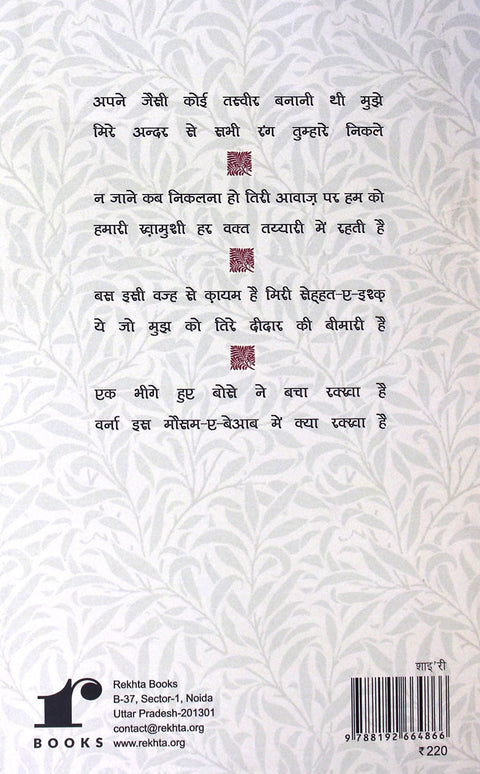 अपने जैसी कोई तस्वीर बनानी थी मुझे
मिरे अन्दर से सभी रंग तुम्हारे निकले
न जाने कब निकलना हो तिरी आवाज़ पर हम को
हमारी ख़ामुशी हर वक्त तय्यारी में रहती है
बस इसी वज्ह से क़ायम है मिरी सेहहत-ए-इश्क़
ये जो मुझ को तिरे दीदार की बीमारी है
एक भीगे हुए बोसे ने बचा रक्खा है
वर्ना इस मौसम-ए-बेआब में क्या रक्खा है
शाइ'री
r
BOOKS
Rekhta Books
B-37, Sector-1, Noida
Uttar Pradesh-201301
contact@rekhta.org
www.rekhta.org
9 788192 664866
₹220